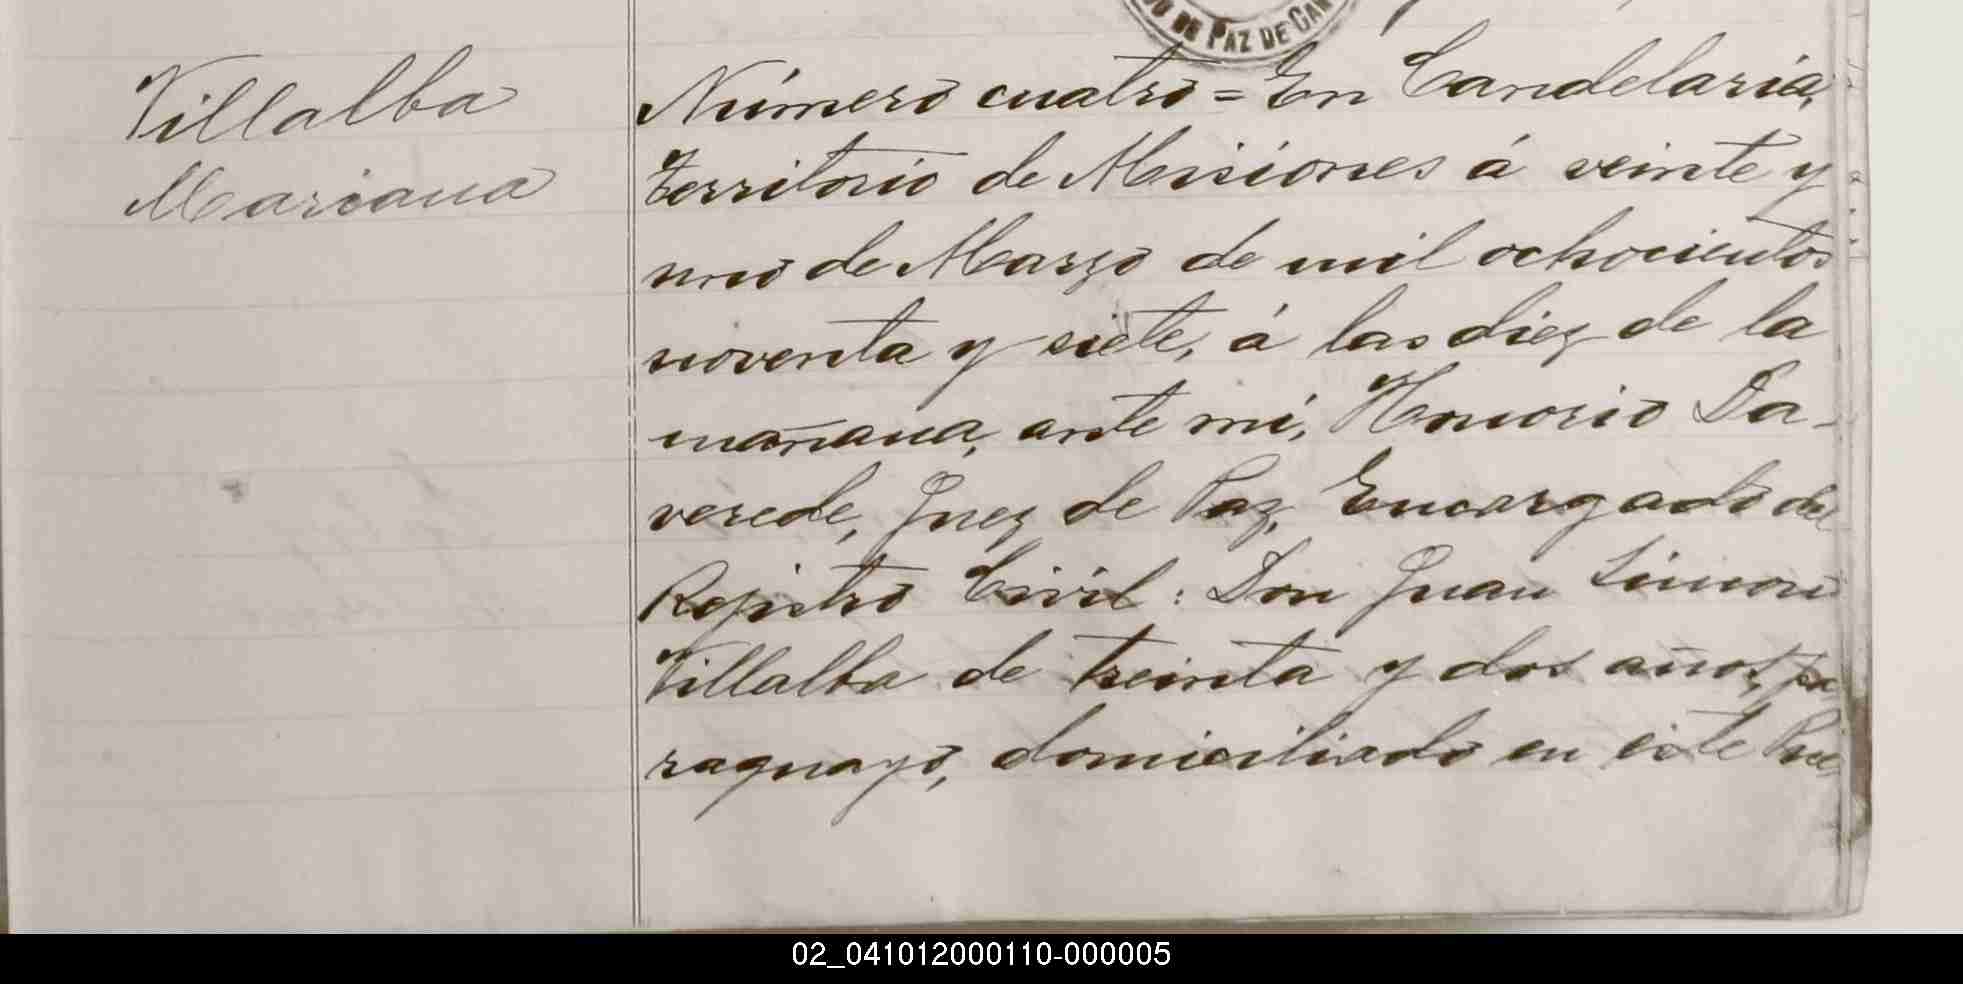 DO DE PAZ DE CAN
Villalba
Mariana
Número cuatro = En Candelaria,
Territorio de Misiones á veinte y
uno de Marzo de mil ochocientos
noventa y siete, á las diez de la
mañana, ante mí, Honorio La-
verede, Juez de Paz, Encargado del
Rejistro Civil: Don Juan Simon
Villalba de treinta y dos años, pa
raguayo, domiciliado en este Pue
02_041012000110-000005